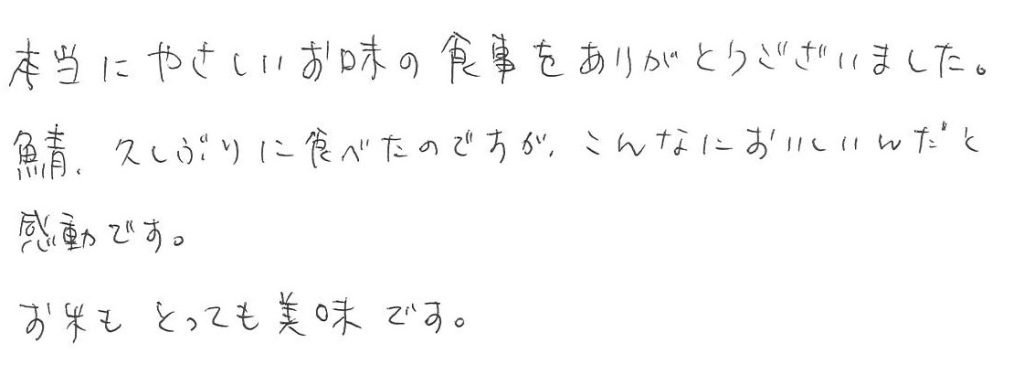 本当にやさしいお味の食事をありがとうございました。
鯖、久しぶりに食べたのですが、こんなにおいしいんだと
感動です。
お米も とっても美味です。